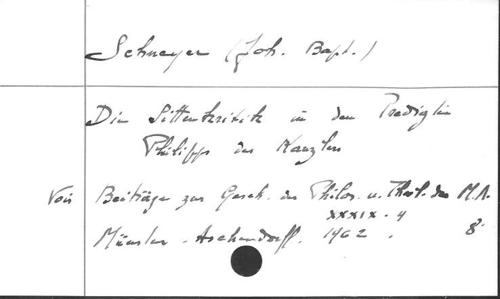 Schneyer (Joh. Bapt.)
Die Sittenkritik in den Predigten
Philipps des Kanzlers
Voir Beiträge zur Gesch. der Philos. u. Theol. des M.A.
XXXIX-4
Münster - Aschendorff. 1962. 8°